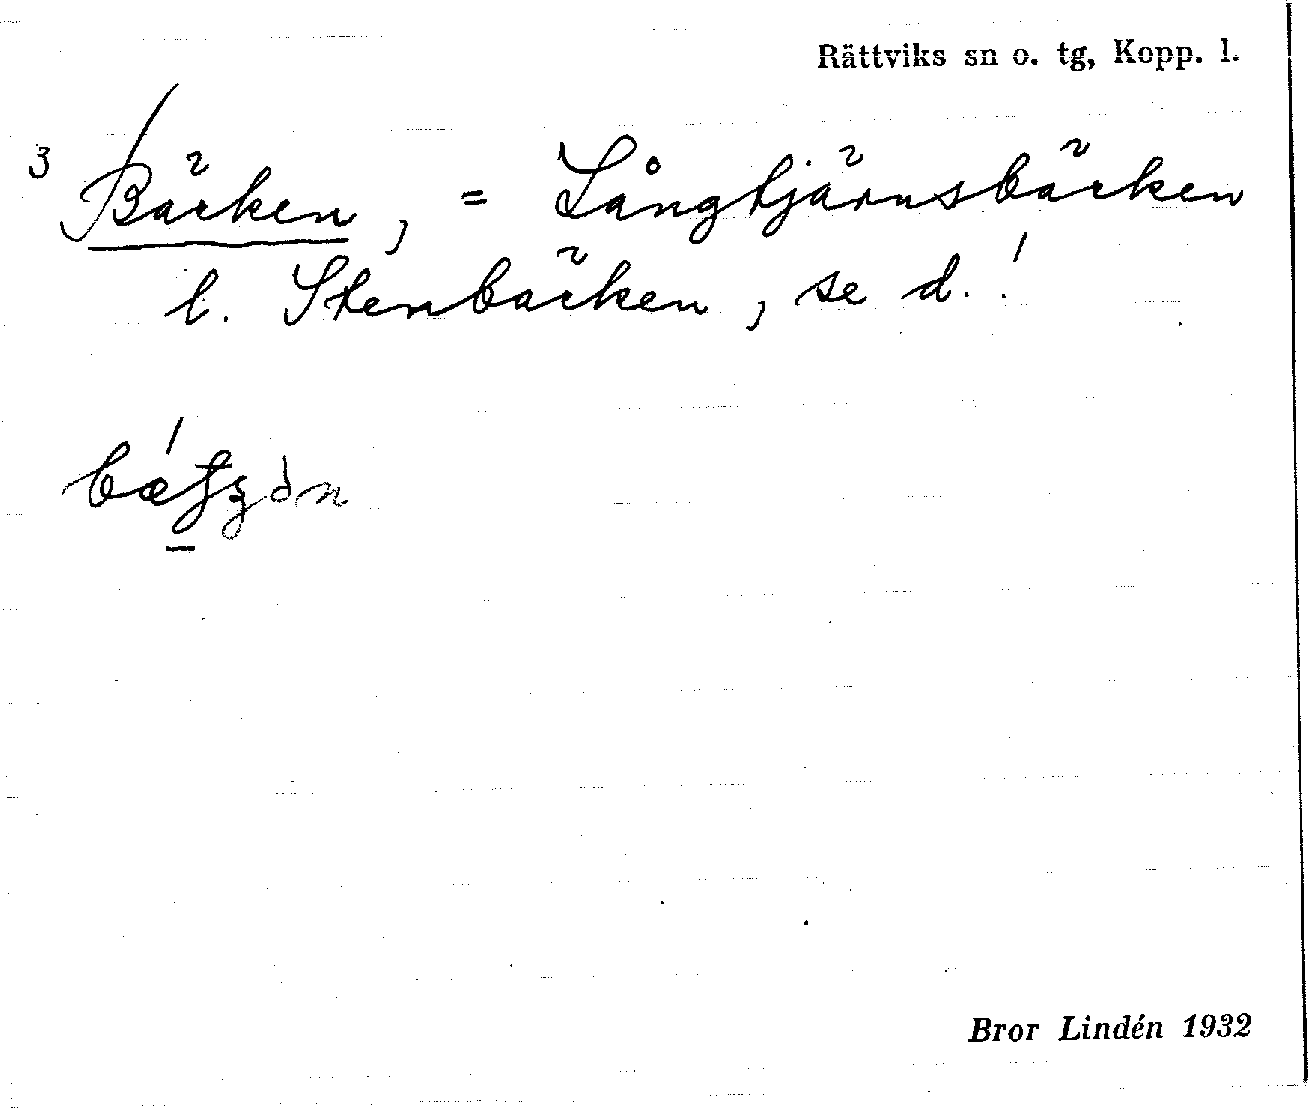 Rättviks sn o. tg, Kopp. l.
3 Bäcken, = Långtjärnsbäcken
l. Stenbäcken, se d.!
Bror Lindén 1932